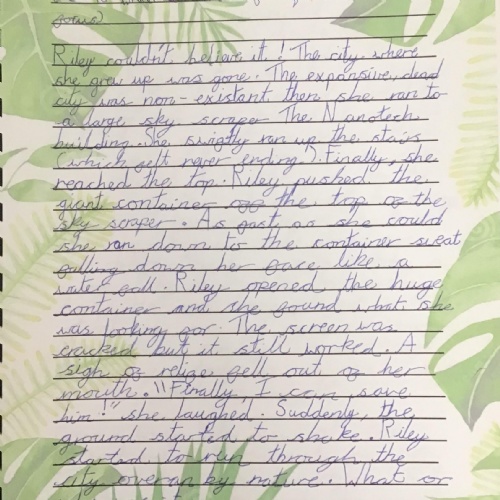 focus)
Riley couldn't believe it! The city where
she grew up was gone. The expansive, dead
city was non-existant then she ran to
a large sky scraper The Nanotech
building. She swiftly ran up the stairs
(which felt never ending). Finally, she
reached the top. Riley pushed the
giant container off the top of the
sky scraper. As fast as she could
she ran down to the container sweat
falling down her face like a
water fall. Riley opened the huge
container and she found what she
was looking for. The screen was
cracked but it still worked. A
sigh of relife fell out of her
mouth. "Finally I can save
him!" she laughed. Suddenly, the
ground started to shake. Riley
started to run through the
city overan by nature. What or